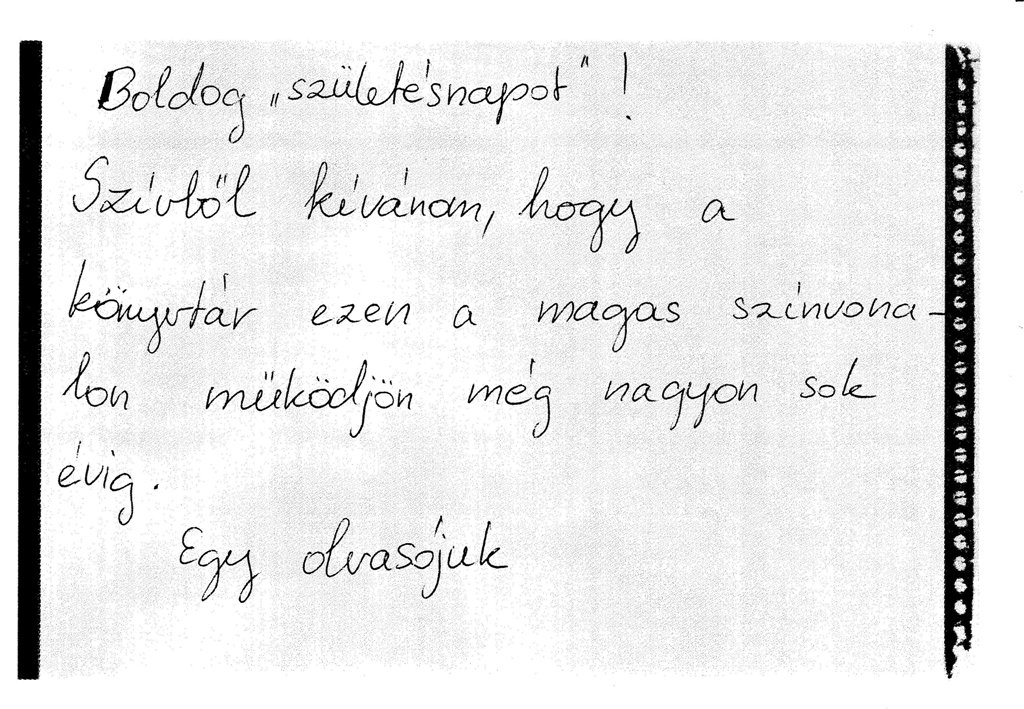 Boldog „születésnapot"!
Szívből kívánom, hogy a
könyvtár ezen a magas színvona-
lon működjön még nagyon sok
évig.
Egy olvasójuk